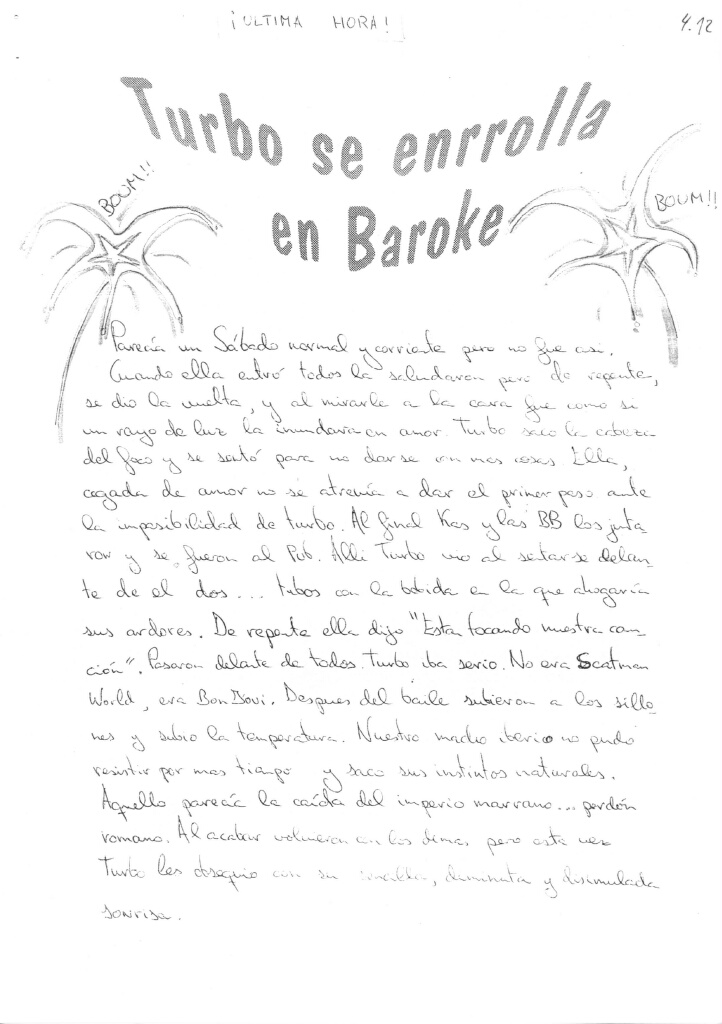 ¡ULTIMA HORA!
4.12
Turbo se enrrolla
en Baroke
BOUM!!
BOUM!!
Parecía un Sábado normal y corriente pero no fue asi.
Cuando ella entró todos la saludaron pero de repente,
se dio la vuelta, y al mirarle a la cara fue como si
un rayo de luz la inundara en amor. Turbo saco la cabeza
del foco y se sentó para no darse con mas cosas. Ella,
cegada de amor no se atrevia a dar el primer paso ante
la imposibilidad de turbo. Al final Kas y las BB los junta
ron y se fueron al Pub. Alli Turbo vio al sentarse delan-
te de el dos... tubos con la bebida en la que ahogaria
sus ardores. De repente ella dijo "Esta tocando nuestra can-
ción". Pasaron delante de todos. Turbo iba serio. No era Scatman
World, era Bon Jovi. Despues del baile subieron a los sillo-
nes y subio la temperatura. Nuestro macho iberico no pudo
resistir por mas tiempo y saco sus instintos naturales.
Aquello parecía la caída del imperio marrano... perdón
romano. Al acabar volvieron con los demas, pero esta vez
Turbo les obsequio con su sencilla, diminuta y disimulada
sonrisa.